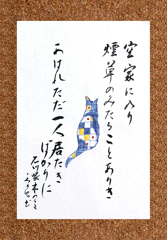 空家に入り
煙草のみたることありき
あはれただ一人居たき
ばかりに
石川啄木